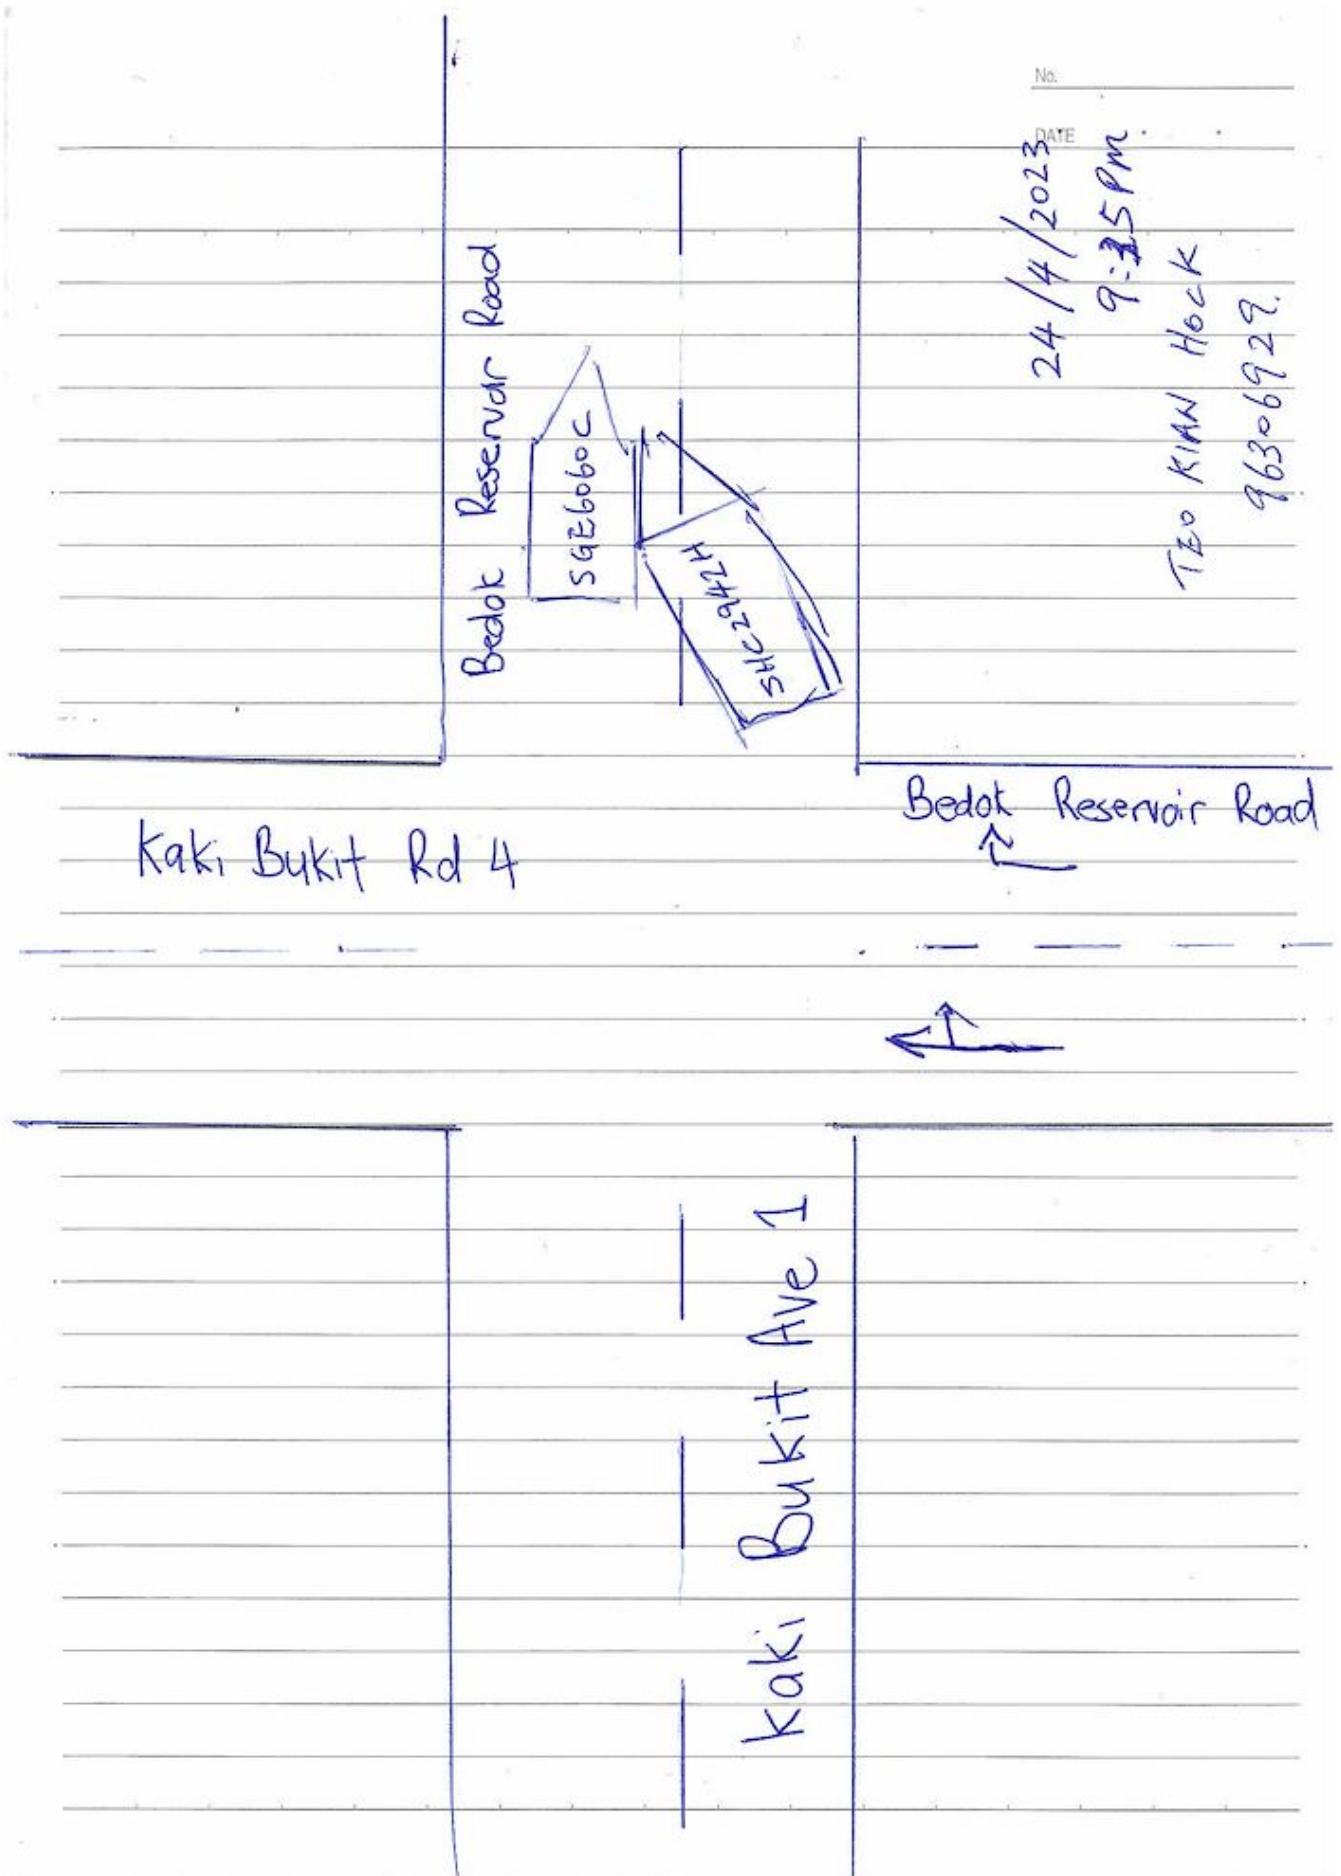 No.
DATE
24/4/2023
9:35 PM
TEO KIAN HOCK
96306929.
Bedok Reservoir Road
SGE6060C
SHC2942H
Bedok Reservoir Road
Kaki Bukit Rd 4
Kaki Bukit Ave 1